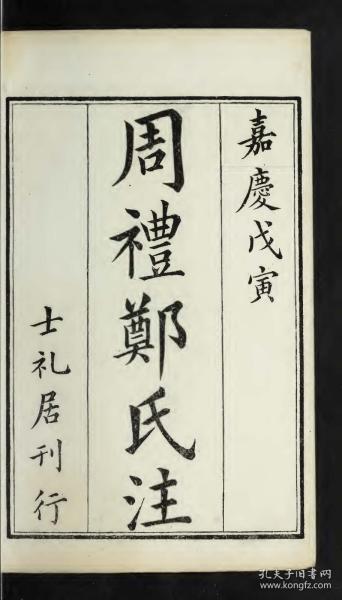 嘉慶戊寅
周禮鄭氏注
士礼居刊行
孔夫子旧书网
www.kongfz.com